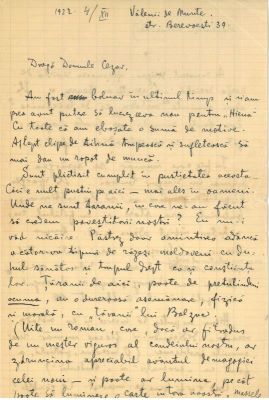 1922 4/VII Vălenii de Munte
str. Berevoești 39.
Dragă Domnule Cezar,
Am fost bolnav în ultimul timp și n'am
prea avut putere să lucrez ceva nou pentru „Hiena"
Cu toate că am eboșate o sumă de motive.
Aștept clipe de tihnă trupească și sufletească să
mai dau un ropot de muncă.
Sunt plictisit cumplit în pustietatea aceasta.
Căci e mult pustiu pe aici — mai ales în oameni.
Unde ne sunt țăranii, în care ne-au făcut
să credem povestitorii noștri? Eu nu-i
văd nicăire. Păstrez doar amintirea adâncă
a câtorva tipuri de răzeși moldoveni cu
sănătos și trupul drept ca și conștiința
lor. Țăranii de aici, poate de pretutindeni
acuma, au o dureroasă asemănare, fizică
și morală, cu țăranii lui Balzac
(Uite un roman, care, dacă ar fi tradus
de un meșter viguros al condeiului nostru, ar
zdruncina apreciabil avântul demagogiei
celei noui — și poate ar lumina, pe cât
poate să lumineze o carte în țara noastră,